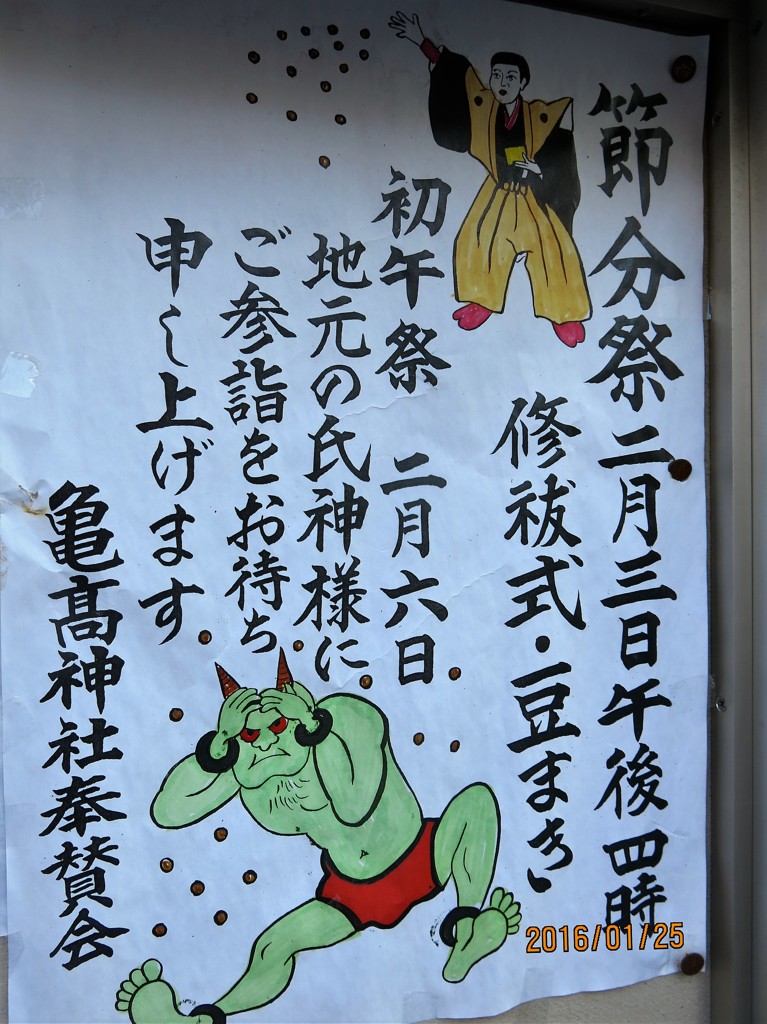 節分祭 二月三日午後四時
修祓式・豆まき
初午祭 二月六日
地元の氏神様に
ご参詣をお待ち
申し上げます
亀髙神社奉賛会
2016/01/25